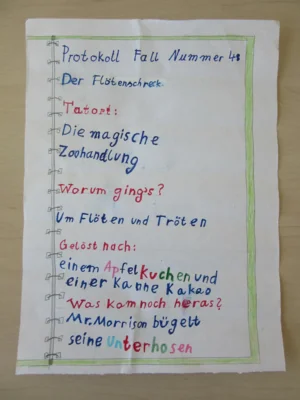 Protokoll Fall Nummer 48
Der Flötenschreck.
Tatort:
Die magische
Zoohandlung
Worum ging's?
Um Flöten und Tröten
Gelöst nach:
einem Apfelkuchen und
einer Kanne Kakao
Was kam noch heras?
Mr. Morrison bügelt
seine Unterhosen